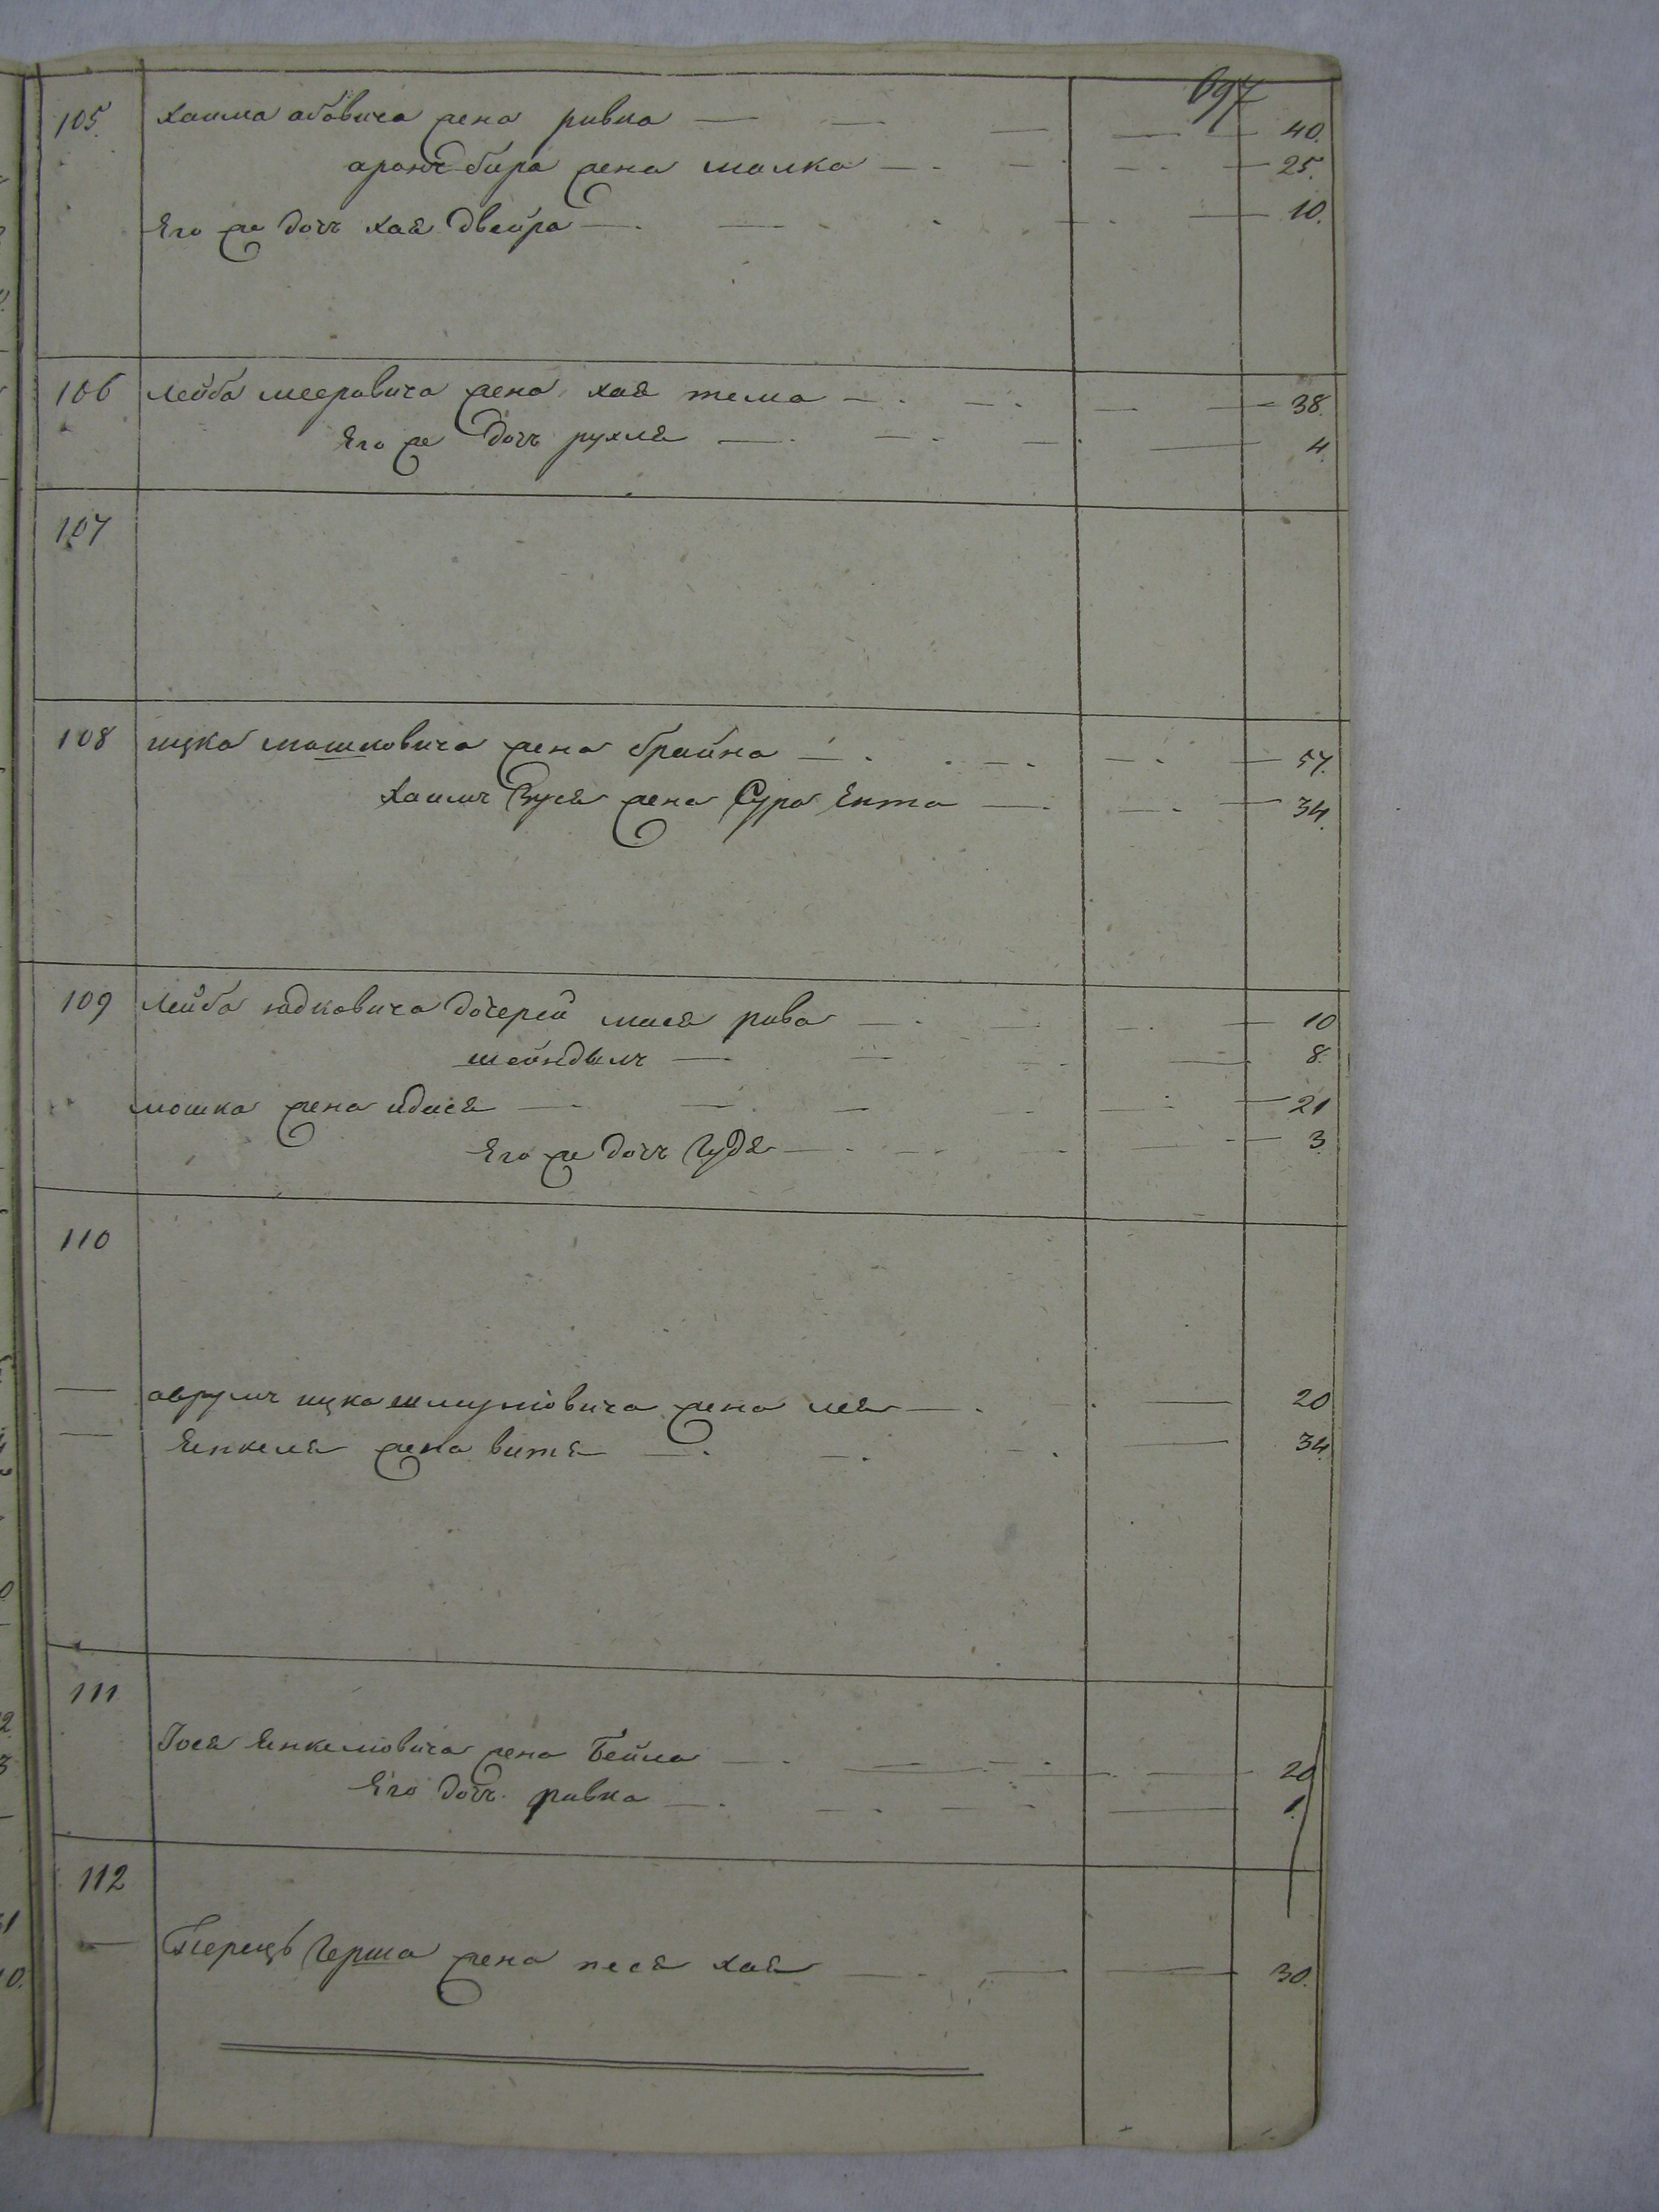 697
105. Хаима абовича жена ривка — — — — — 40.
аронъ бира жена малка — — — — 25.
Его же дочь хая двейра — — — — 10.
106 Лейба мееровича жена хая тема — — — — 38.
Его же дочь рухля — — — — 4.
107
108 ицка мошковича жена брайна — — — — 57.
Хаимъ Зуся жена Сура Ента — — — 34.
109 Лейба юдковича дочерей мася рива — — — — 10
шейндыль — — — — 8.
мошка жена идися — — — — — 21
Его же дочь Гудя — — — — 3
110
— аврумъ ицка шмуловича жена лея — — 20
— Янкеля жена витя — — — — 34.
111
Іося Янкеловича жена Бейла — — — — 20
Его дочь ривка — — — — 1.
112
— Перецъ Герша жена песя хая — — — 30.